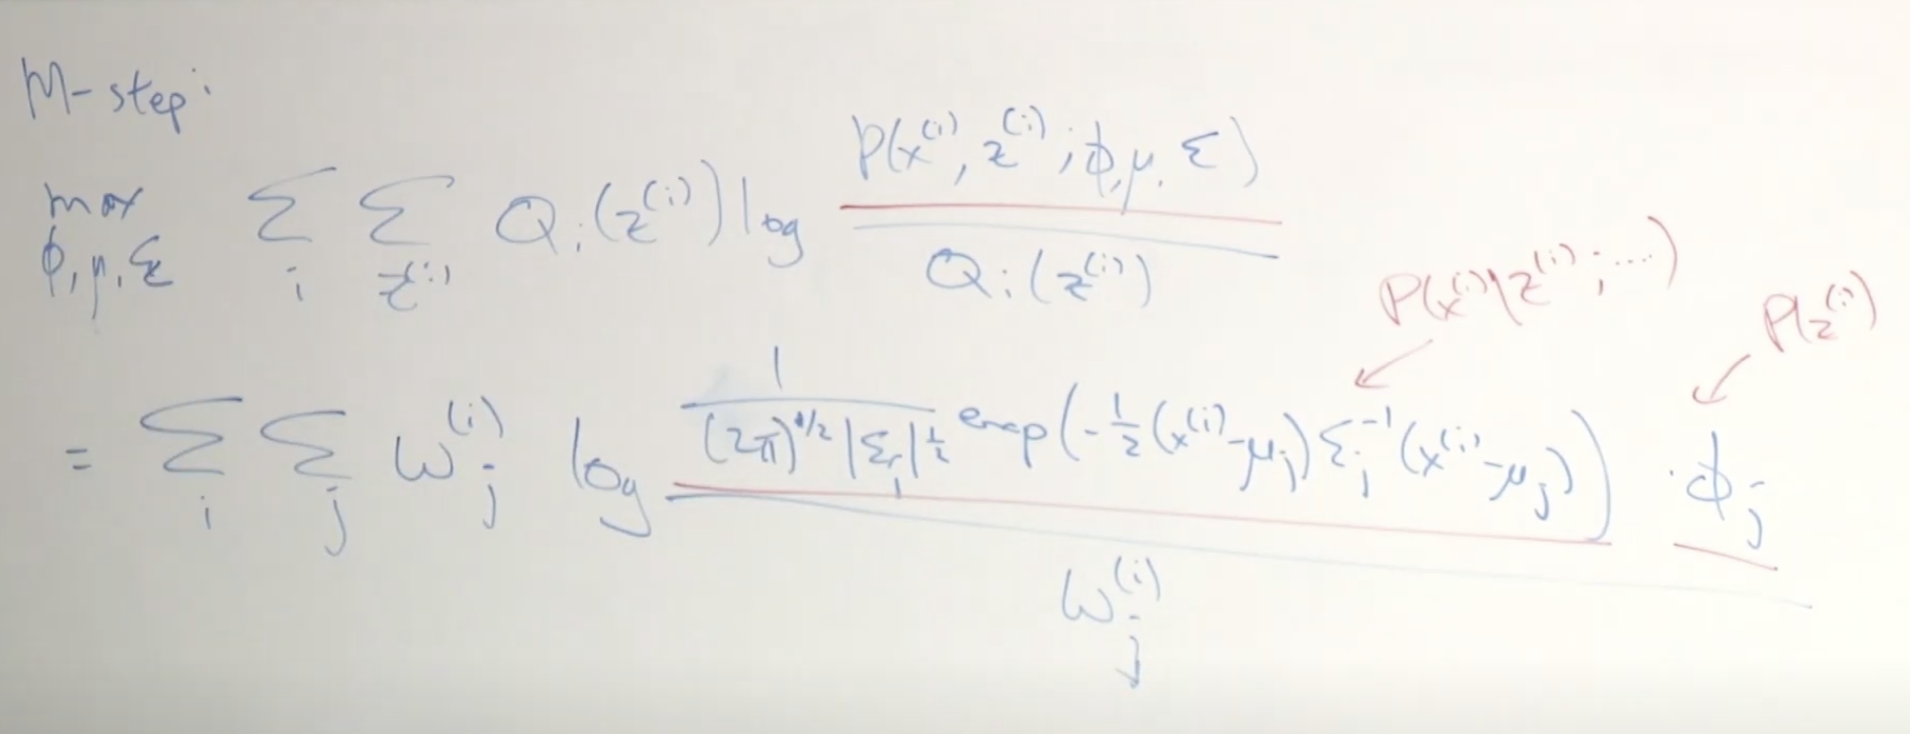 M-step:
max_{φ, μ, Σ} Σ_i Σ_{z^{(i)}} Q_i(z^{(i)}) log P(x^{(i)}, z^{(i)}; φ, μ, Σ) / Q_i(z^{(i)})
P(x^{(i)}|z^{(i)}; ....) P(z^{(i)})
= Σ_i Σ_j w_j^{(i)} log 1 / ((2π)^{n/2} |Σ_j|^{1/2}) exp(-1/2 (x^{(i)} - μ_j) Σ_j^{-1} (x^{(i)} - μ_j)) · φ_j / w_j^{(i)}